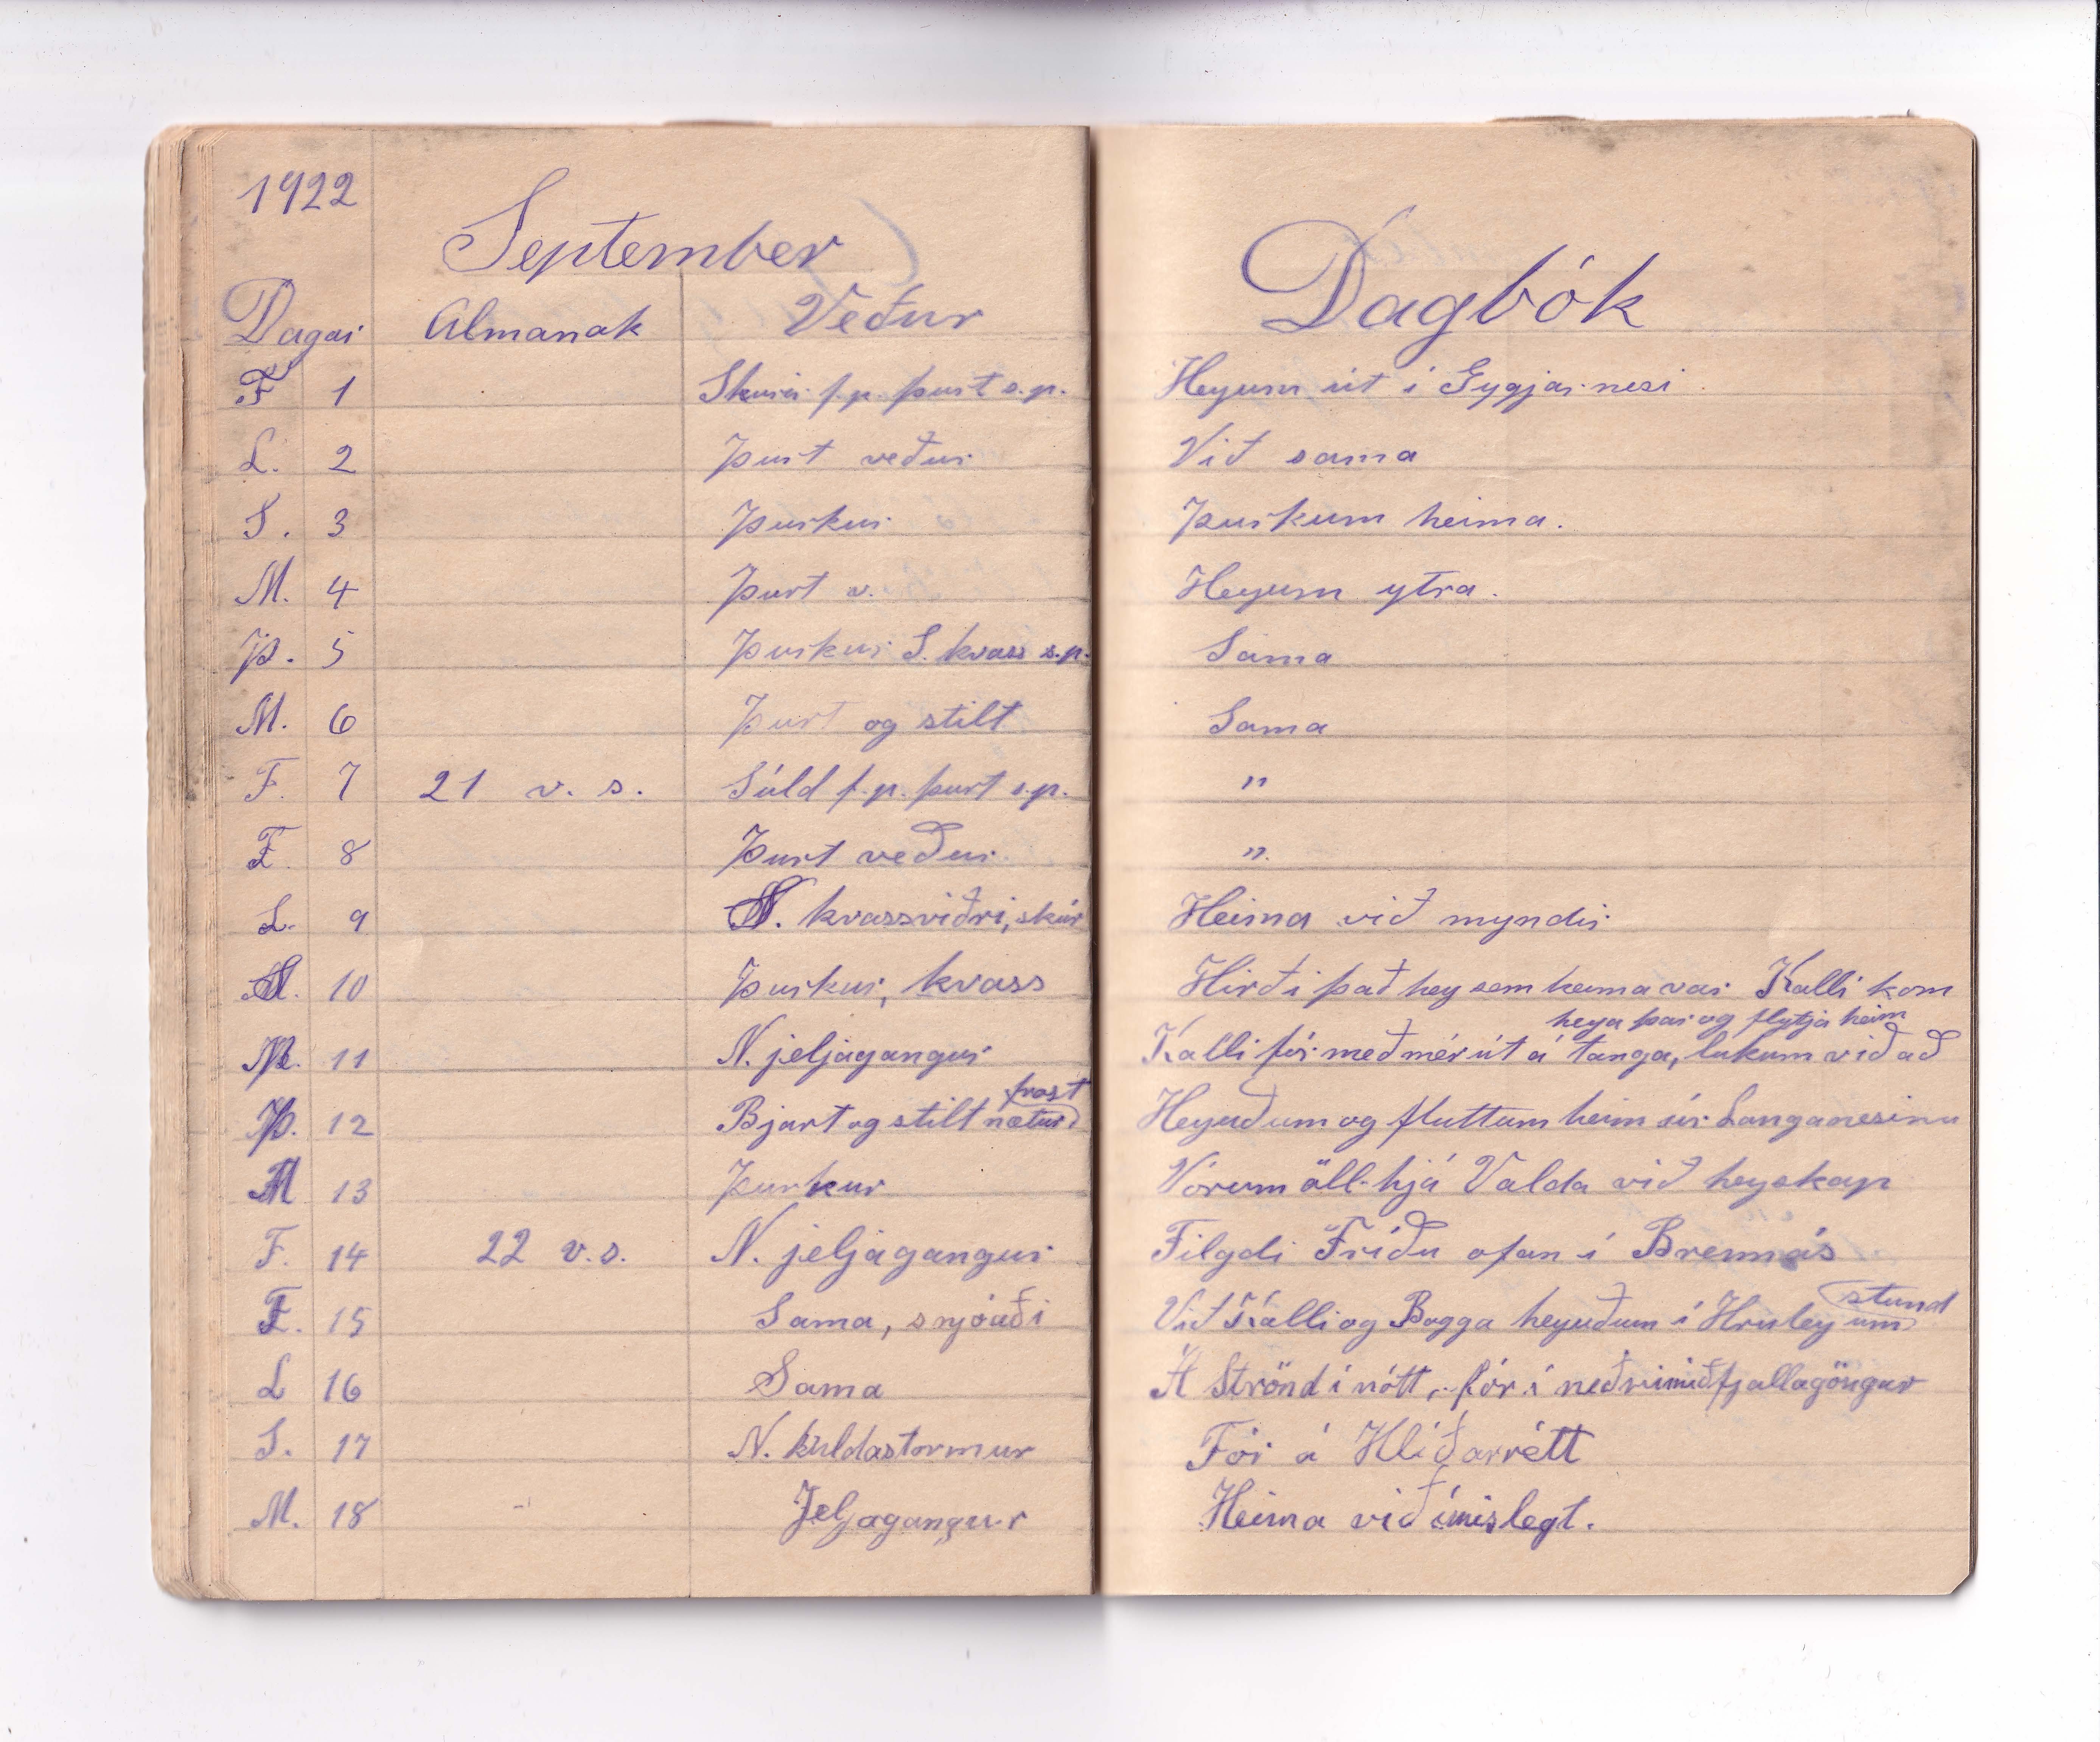 1922
September
Dagar Almanak Veður
F 1 Skúrir f.p. þurt s.p.
L. 2 Þurt veður
S. 3 Þurkur
M. 4 Þurt v.
Þ. 5 Þurkur S. kvass s.p.
M. 6 Þurt og stilt
F. 7 21 v. s. Súld f.p. þurt s.p.
F. 8 Þurt veður
L. 9 kvassviðri, skúr
S. 10 Þurkur, kvass
M. 11 N. jeljagangur
frost
Þ. 12 Bjart og stilt nætur
M 13 Þurkur
F. 14 22 v.s. N. jeljagangur
F. 15 Sama, snjóaði
L 16 Sama
S. 17 N. kuldastormur
M. 18 Jeljagangur
Dagbók
Heyum út í Gygjarnesi
Við sama
Þurkum heima.
Heyum ytra.
Sama
Sama
"
".
Heima við myndir
Hirði það hey sem heima var Kalli kom
heya þar og flytja heim
Kalli fór með mér út á tanga, lukum við að
Heyuðum og fluttum heim úr Langanesinu
Vórum öll hjá Valda við heyskap
Filgdi Fríðu ofan í Brennás
stund
Við Kalli og Bogga heyuðum í um
Á Strönd í nótt, fór í neðri miðfjallagöngur
Fór á Hlíðarrétt
Heima við ímislegt.